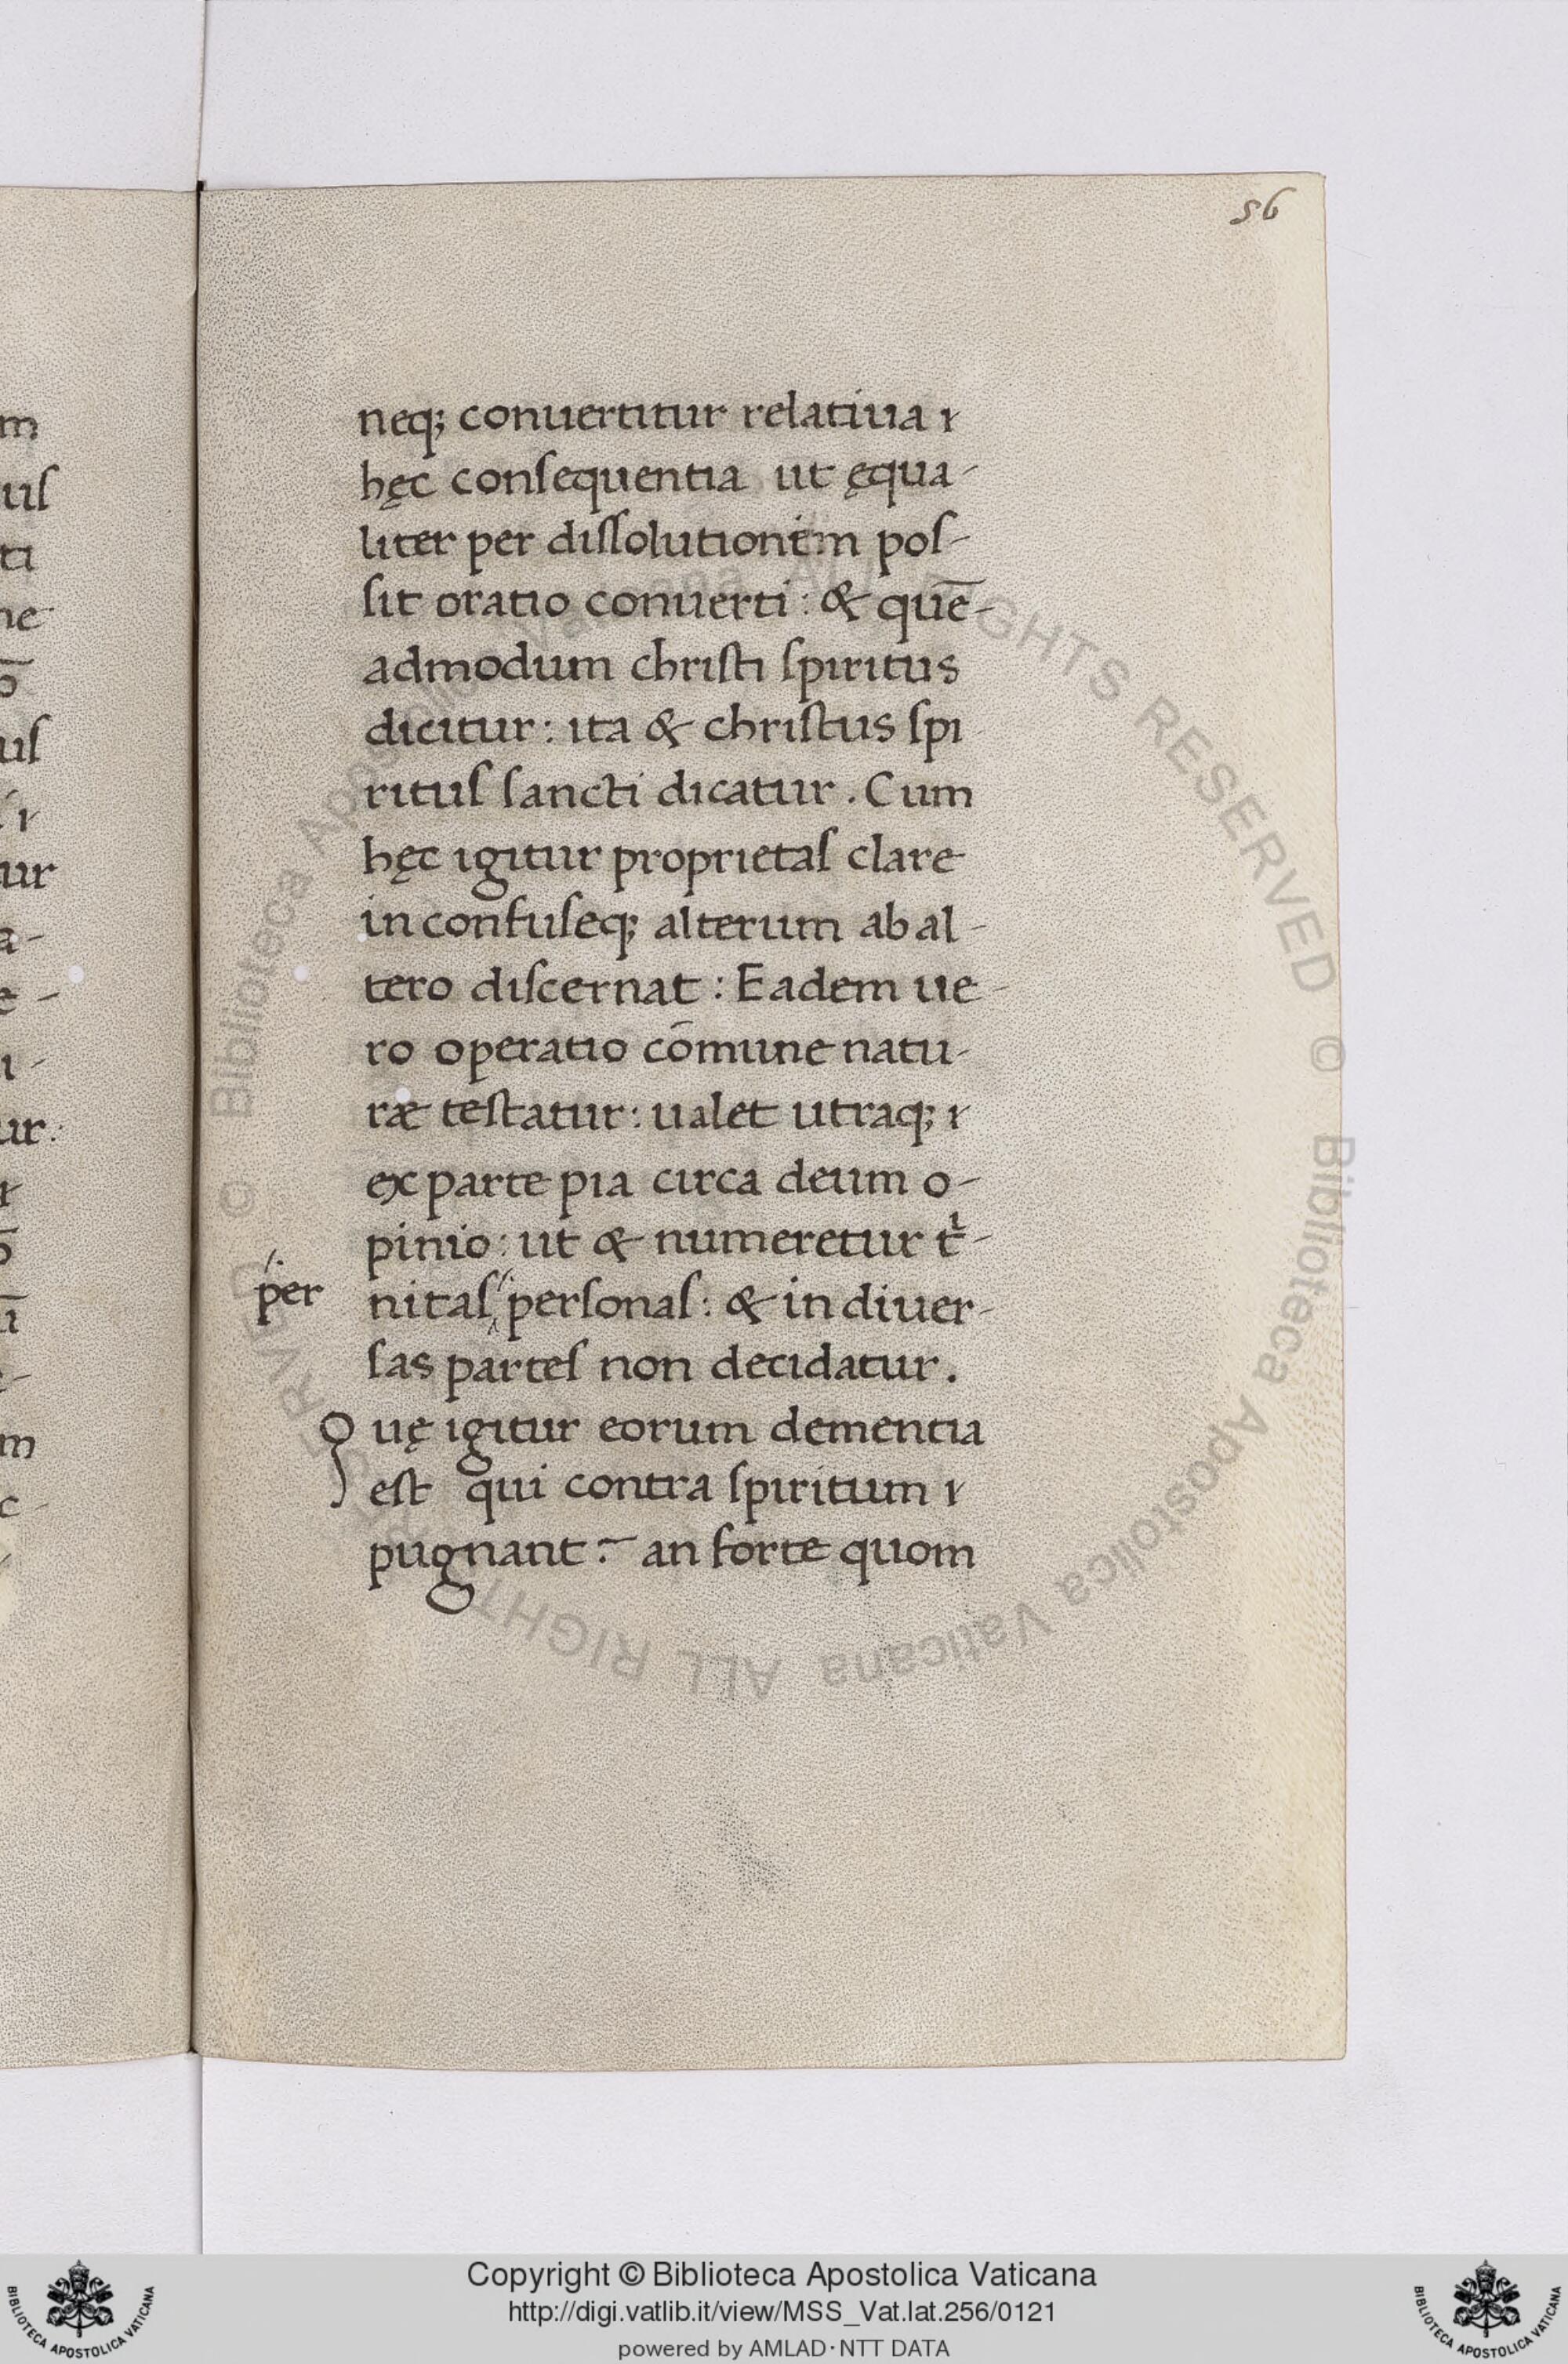 56
neq; conuertitur relatiua
hęc conſequentia ut ęqua-
liter per diſſolutionem poſ-
ſit oratio conuerti: & quē-
admodum chriſti ſpiritus
dicitur: ita & chriſtus ſpi
rituſ ſancti dicatur. Cum
hęc igitur proprietaſ clare
inconfuſeq; alterum ab al-
tero diſcernat: Eadem ue-
ro operatio cōmune natu-
ræ teſtatur: ualet utraq;
ex parte pia circa deum o-
pinio: ut & numeretur tⁱ-
per
nitaſ perſonaſ: & in diuer-
ſas parteſ non decidatur.
Quę igitur eorum dementia
eſt qui contra ſpiritum
pugnant? an forte quom
m
uſ
ti
ur
a-
ur:
m
Copyright © Biblioteca Apostolica Vaticana
http://digi.vatlib.it/view/MSS_Vat.lat.256/0121
powered by AMLAD·NTT DATA
BIBLIOTECA APOSTOLICA VATICANA
BIBLIOTECA APOSTOLICA VATICANA
© Biblioteca Apostolica Vaticana ALL RIGHTS RESERVED
© Biblioteca Apostolica Vaticana ALL RIGHTS RESERVED